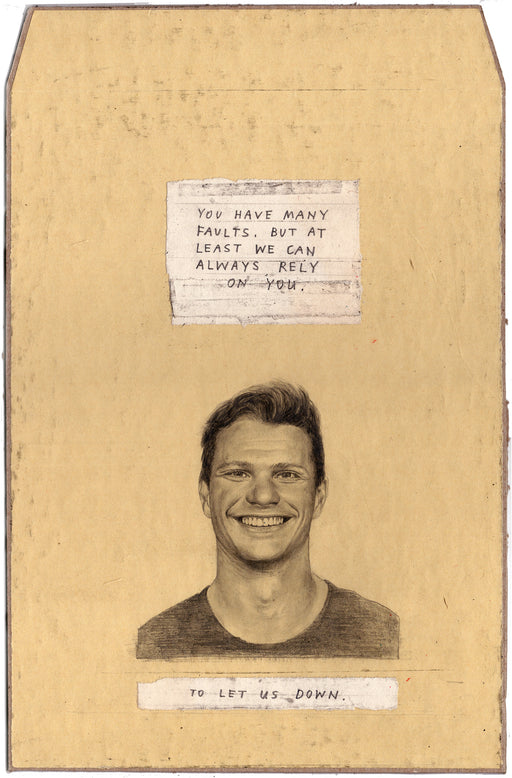 YOU HAVE MANY
FAULTS, BUT AT
LEAST WE CAN
ALWAYS RELY
ON YOU.
TO LET US DOWN.